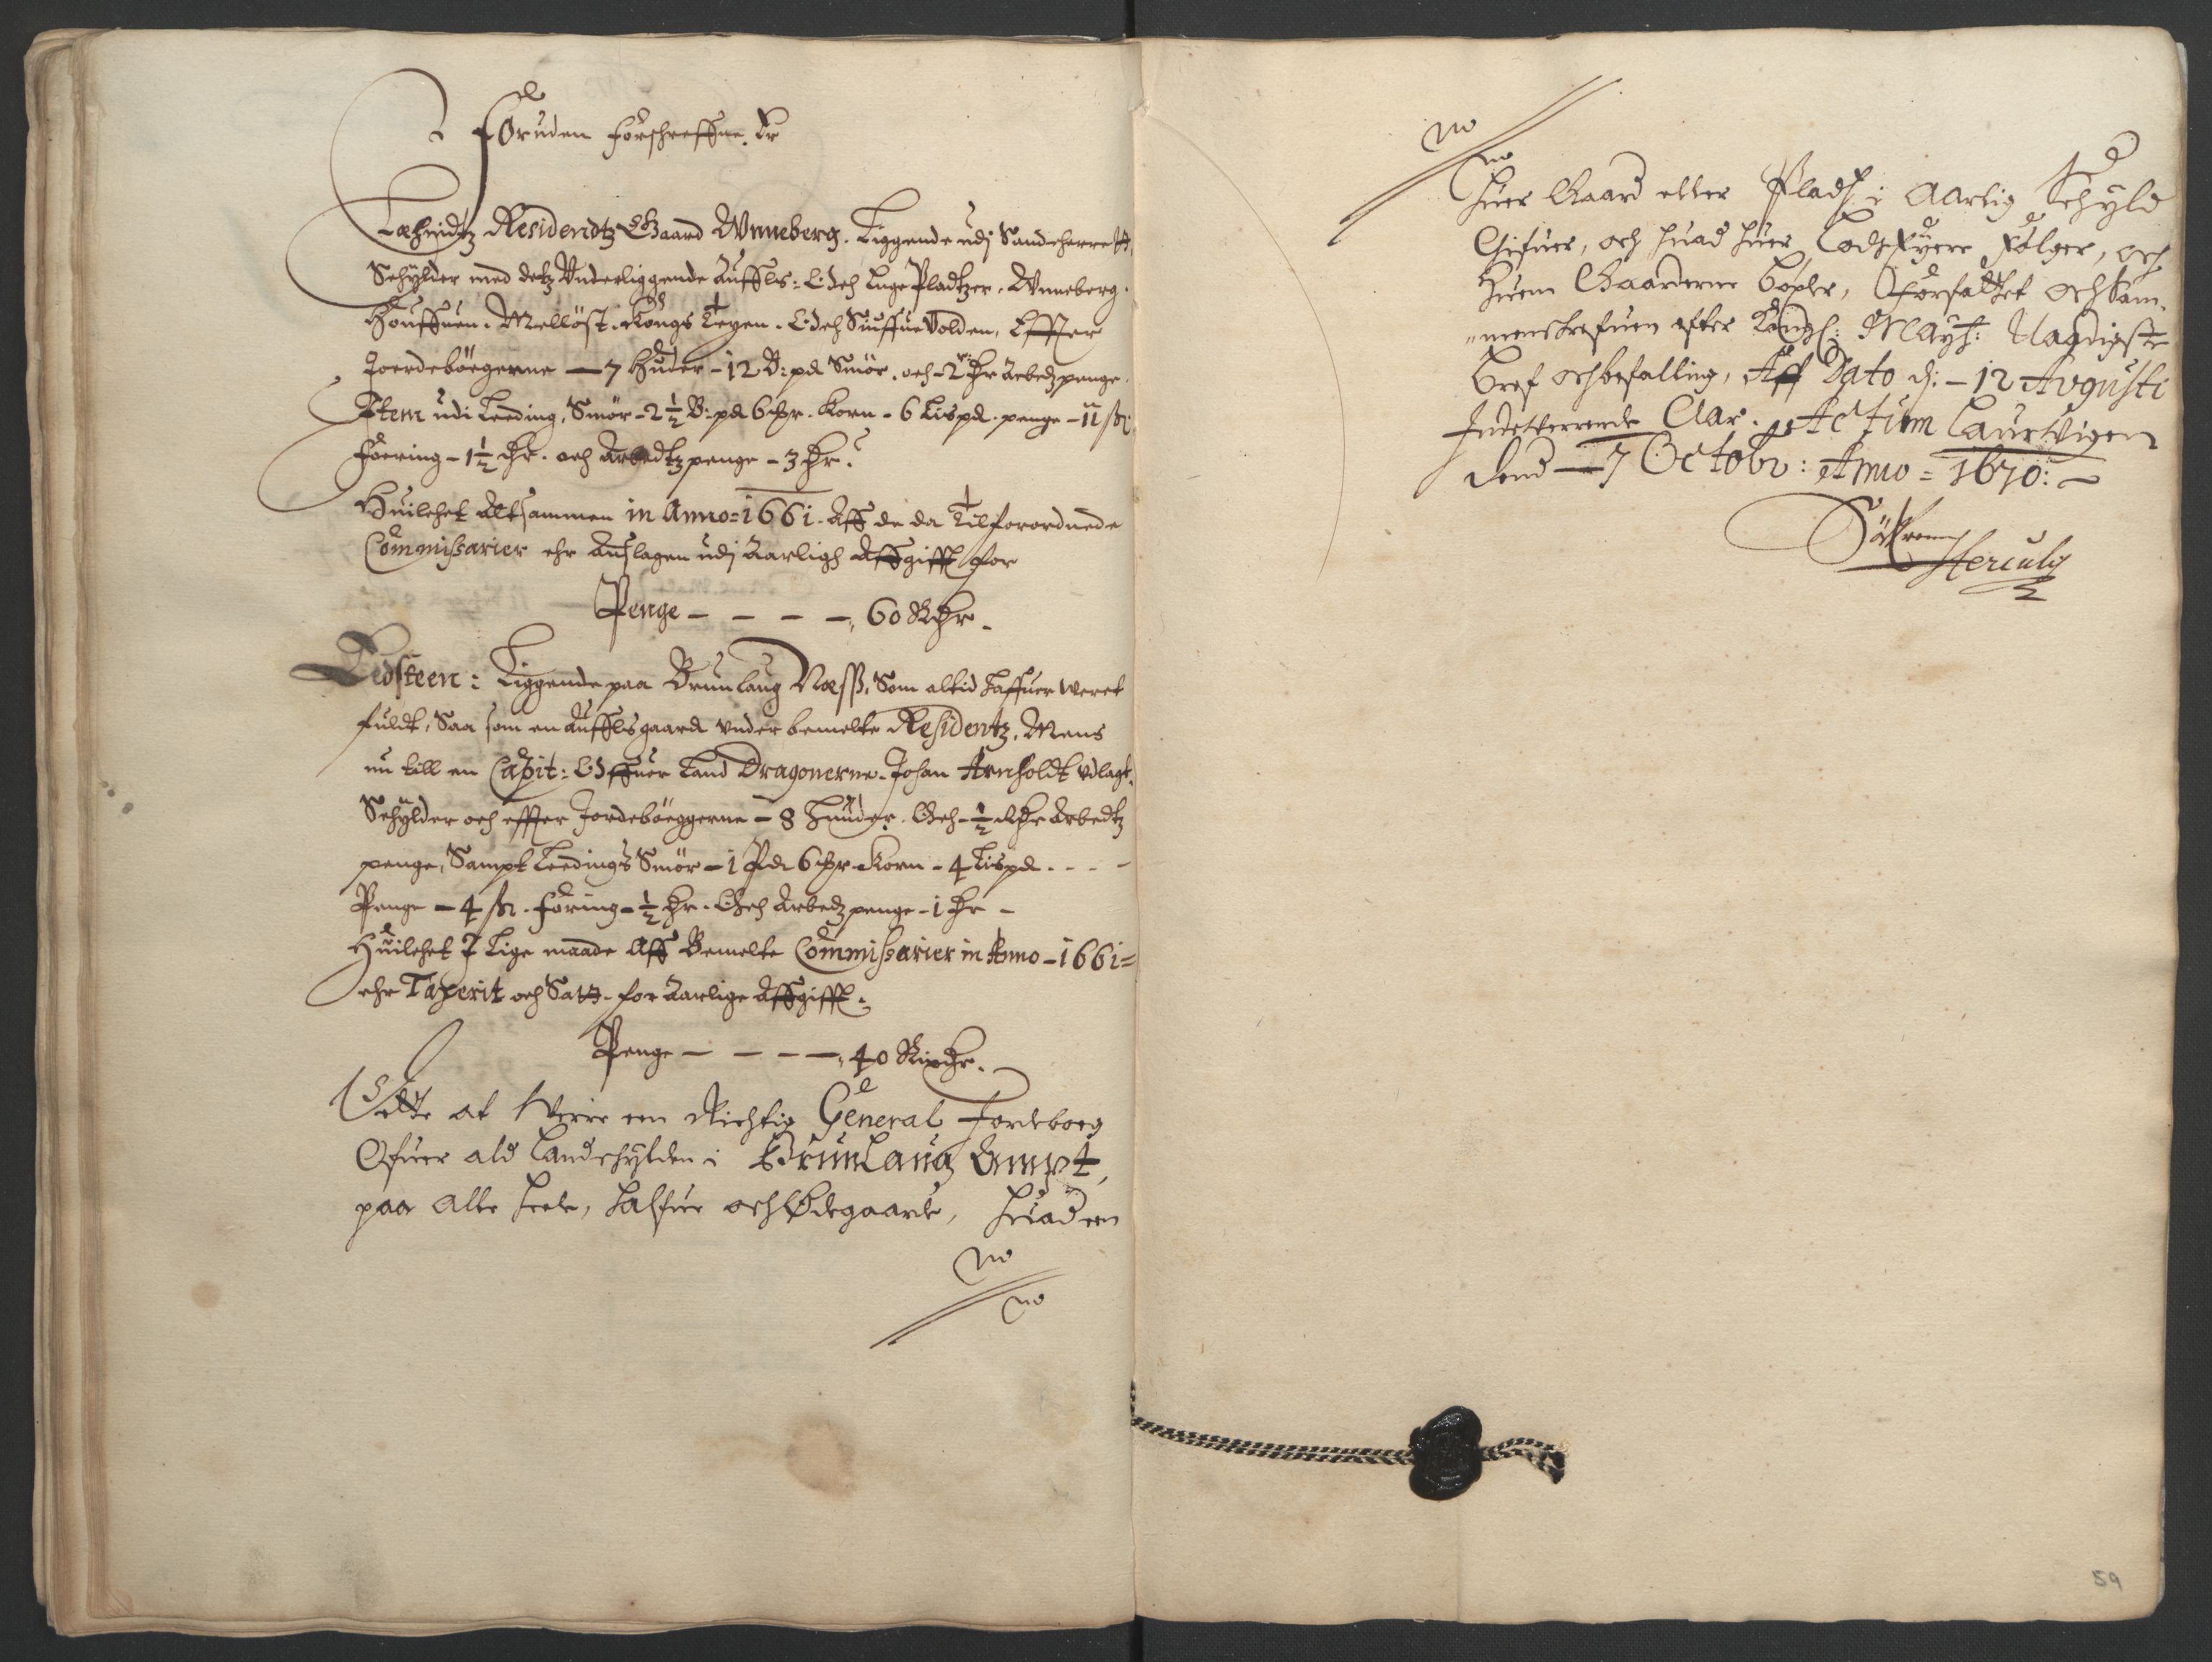 Foruden forschreffne. Er
Læhnidtz Residendtz Gaard Wnneberg. Liggende udj Sandeherrett,
Schylder med detz Underliggende Auffls: Och Enge Pladtzer. Wnneberg.
Houffuen. Melløst. Kongs Tegen. Och Siuffue Volden, Effter
Joerdebøegerne — 7 Huder - 12 B: pd Smör. och - 2 Ør Arbedz penge.
Item udi Leeding, Smör - 2½ B: pd 6 Mr. Korn - 6 Lispd. penge - 11 ß:
Foering - 1½ Ør. och Arbedtz penge - 3 Ør.
Huilchet Altsammen in Anno = 1661. Aff de da Tilforordnede
Commissarier ehr Anslagen udj Aarligh Affgifft for
Penge — — — — 60 Rdr.
Vedsteen: Liggende paa Brunlaug Næss, Som altid haffuer weret
fuldt, Saa som en Aufflsgaard under bemelte Residentz, Mens
nu till en Capit: Offuer Land Dragonerne. Johan Arnholdt udlagt.
Schylder och effter Jordebøggerne - 8 Huuder. Och - ½ Ør Arbedtz
penge, Sampt Leedings Smör - 1 Pd 6 Mr. Korn - 4 Lispd. - - -
Penge - 4 ß. Føring - ½ Ør. Och Arbedz penge - 1 Ør -
Huilchet J Lige maade Aff Bemelte Commissarier in Anno - 1661 =
ehr Taxerit och Satt. for Aarlige Affgifft.
Penge — — — — 40 Rixdr.
Dette at Werre een Richtig General Jordeboeg
Ofuer ald Landschylden i Brunlaug Ampt,
paa alle heele, halfue och Ødegaarde, huad een
no
no
no
no
huer Gaard eller Pladtz i Aarlig Schyld
Gifuer, och huad huer Lodz Eyere følger, och
Huem Gaarderne böxler, Forfattet och Sam-
"menskrefuen efter Kongl: Mayts: Naadigste
bref och befalling, Aff Dato d: - 12 Avgusti
Indeverrende Aar. Actum Laurwigen
dend — 7 Octobr: Anno = 1670: -
Sörren
Herculy
59